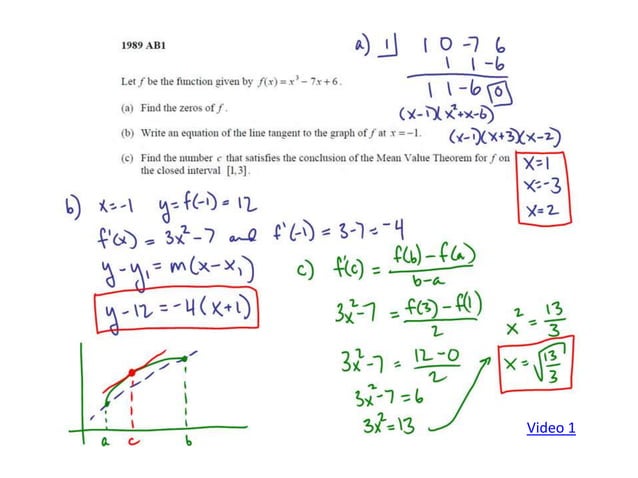 1989 AB1
Let f be the function given by f(x) = x³ − 7x + 6.
(a) Find the zeros of f.
(b) Write an equation of the line tangent to the graph of f at x = −1.
(c) Find the number c that satisfies the conclusion of the Mean Value Theorem for f on
the closed interval [1,3].
a) 1| 1 0 -7 6
1 1 -6
1 1 -6 0
(x-1)(x²+x-6)
(x-1)(x+3)(x-2)
x=1
x=-3
x=2
b) x=-1 y=f(-1)=12
f'(x) = 3x²-7 and f'(-1) = 3-7 = -4
y-y₁ = m(x-x₁)
y-12 = -4(x+1)
c) f'(c) = f(b)-f(a) / b-a
3x²-7 = f(3)-f(1) / 2
3x²-7 = 12-0 / 2
3x²-7 = 6
3x²=13
x² = 13/3
x = √13/3
a c b
Video 1